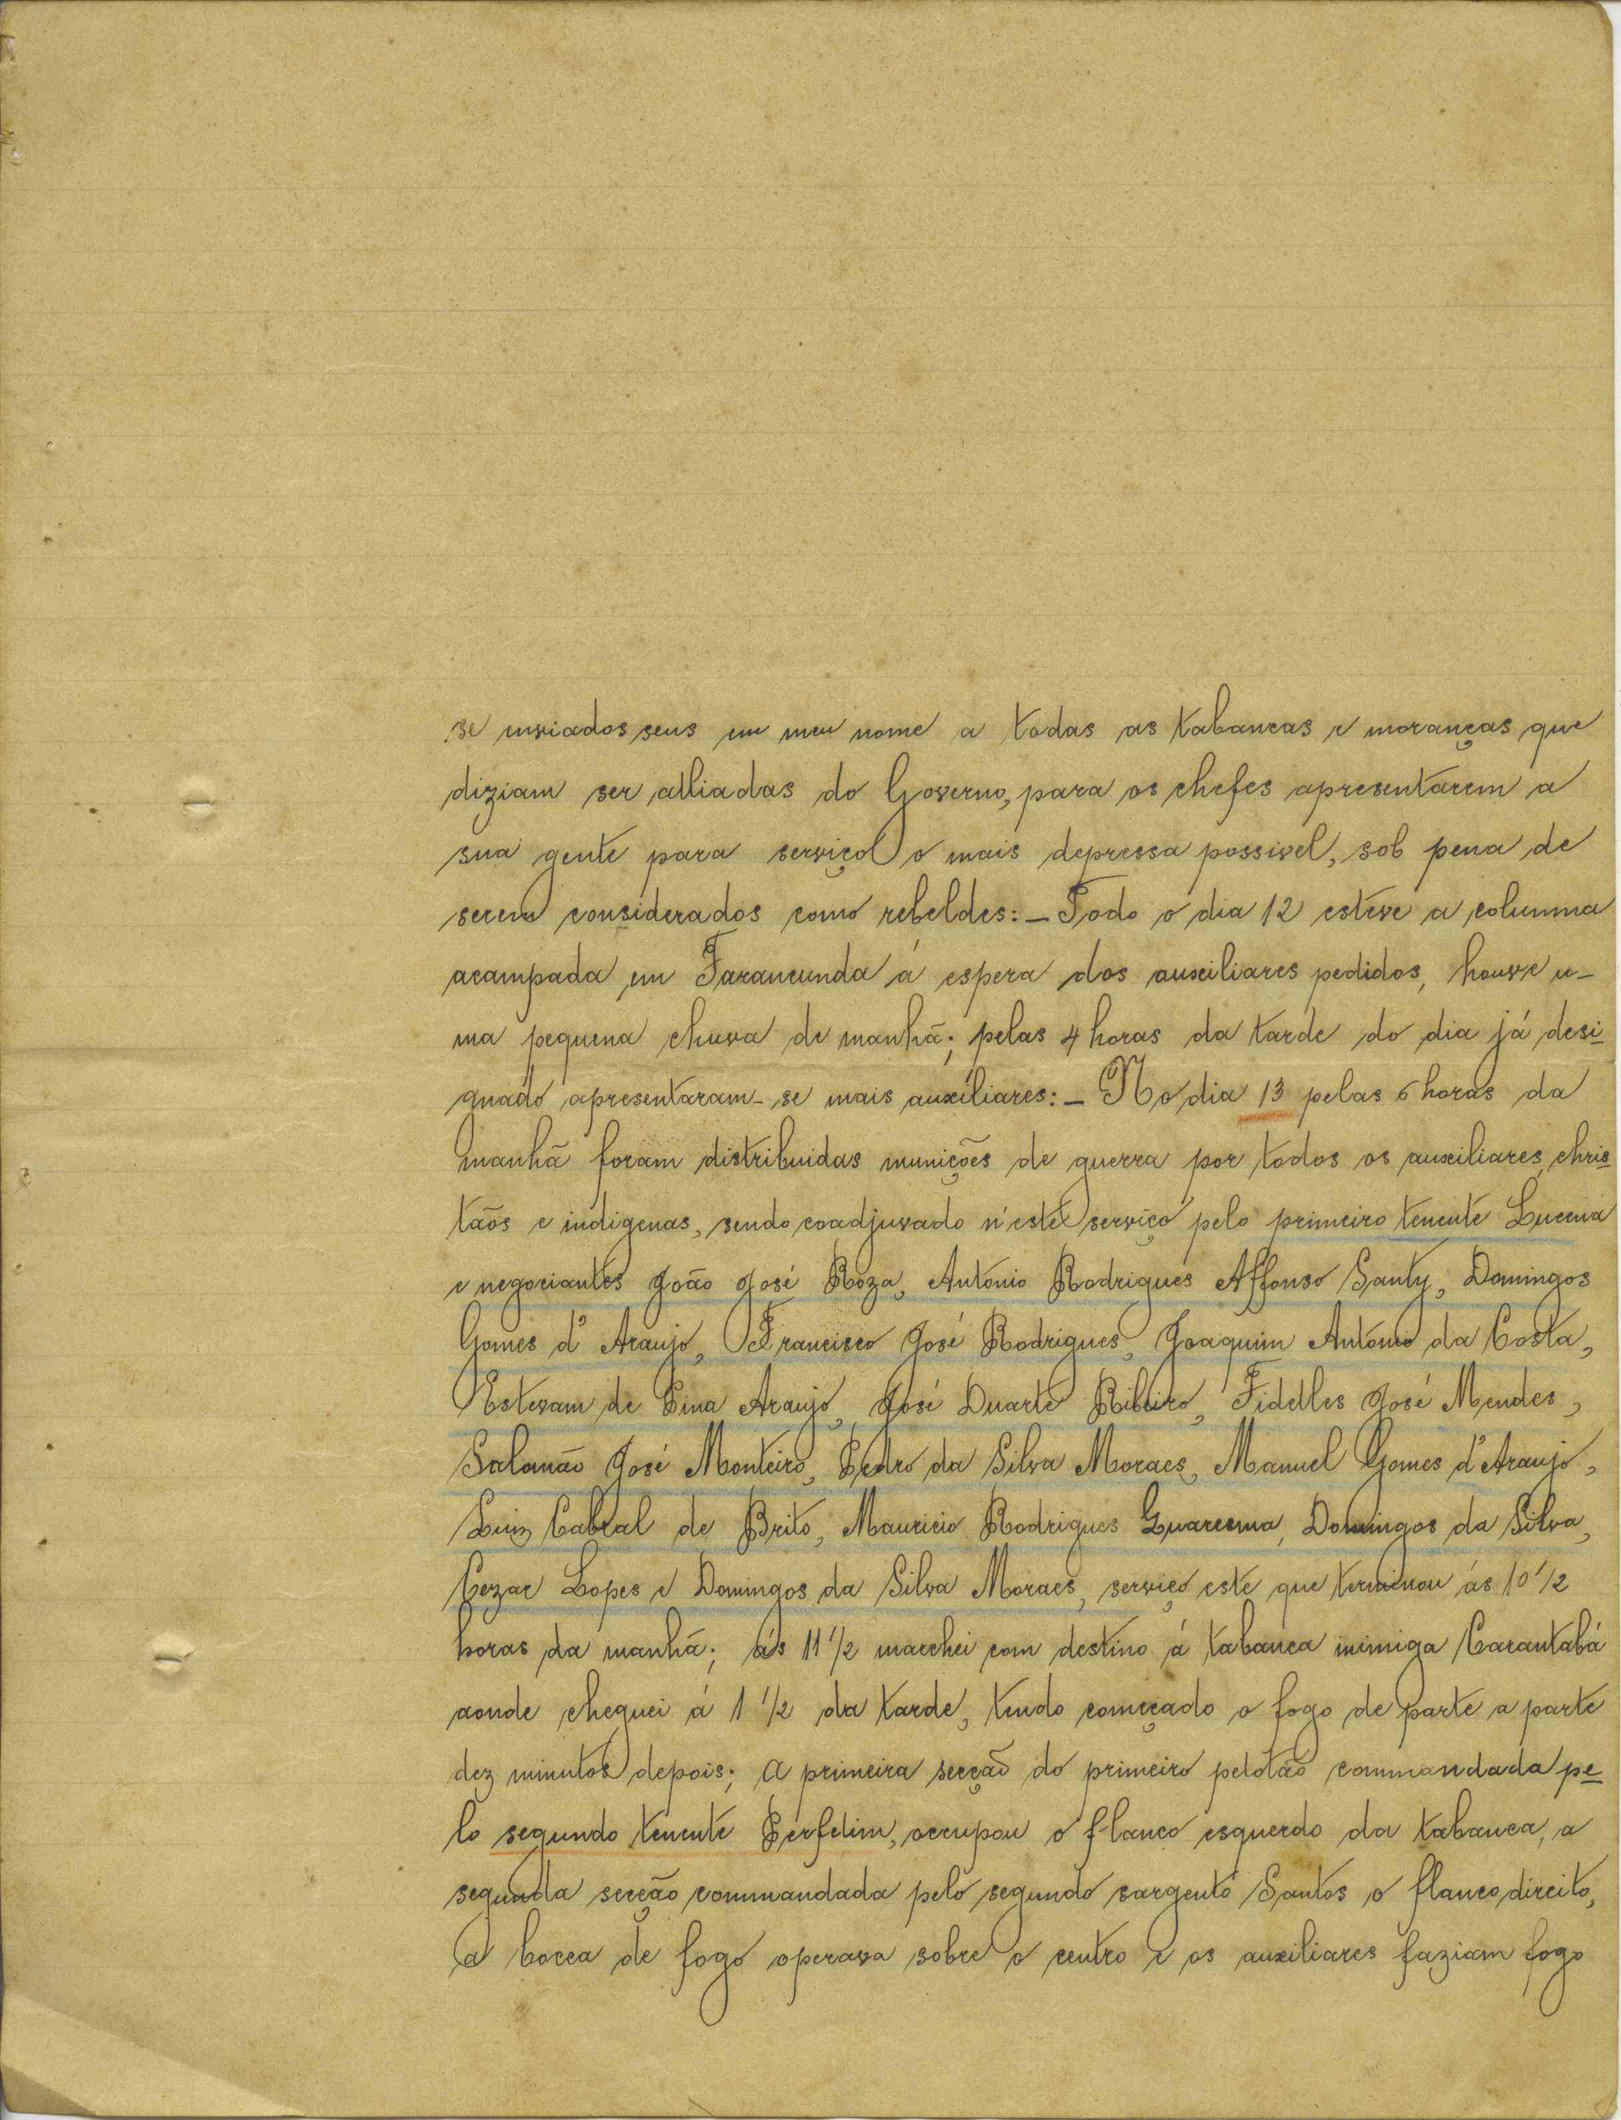 se enviados seus em meu nome a todas as tabancas e moranças que
diziam ser alliadas do Governo, para os chefes apresentarem a
sua gente para serviço o mais depressa possivel, sob pena de
serem considerados como rebeldes:_Todo o dia 12 esteve a columna
acampada em Farancunda á espera dos auxiliares pedidos, houve u_
ma pequena chuva de manhã; pelas 4 horas da tarde do dia já desi_
gnado apresentaram_se mais auxiliares:_No dia 13 pelas 6 horas da
manhã foram distribuidas munições de guerra por todos os auxiliares, chris_
tãos e indigenas, sendo coadjuvado n'este serviço pelo primeiro tenente Lucena
e negociantes João José Roza, Antonio Rodrigues Affonso Santy, Domingos
Gomes d'Araujo, Francisco José Rodrigues, Joaquim Antonio da Costa,
Estevam de Pina Araujo, José Duarte Ribeiro, Fidelles José Mendes,
Salamão José Monteiro, Pedro da Silva Moraes, Manuel Gomes d'Araujo,
Luiz Cabral de Brito, Mauricio Rodrigues Guaresma, Domingos da Silva,
Cezar Lopes e Domingos da Silva Moraes, serviço este que terminou ás 10 1/2
horas da manhã; ás 11 1/2 marchei com destino á tabanca inimiga Carantabá
aonde cheguei á 1 1/2 da tarde, tendo começado o fogo de parte a parte
dez minutos depois; A primeira secção do primeiro pelotão commandada pe_
lo segundo tenente Perfelim, occupou o flanco esquerdo da tabanca, a
segunda secção commandada pelo segundo sargento Santos o flanco direito,
a bocca de fogo operava sobre o centro e os auxiliares faziam fogo